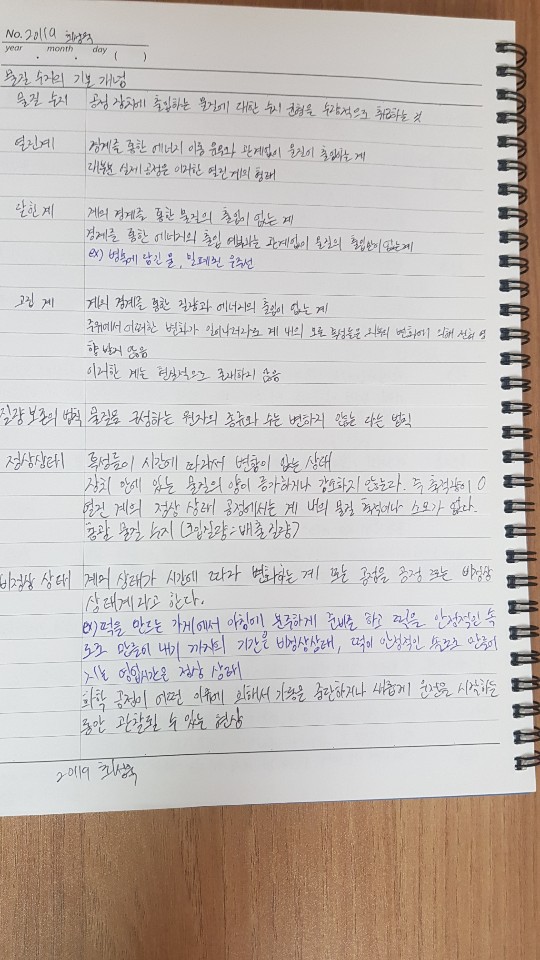 No. 20119 최상욱
year . month . day ( )
물질 수지의 기본 개념
물질 수지 공정 장치에 출입하는 물질에 대한 수지 균형을 수량적으로 취급하는 것
열린계 경계를 통한 에너지 이동 유무와 관계없이 물질이 출입하는 계
대부분 실제 공정은 이러한 열린 계의 형태
닫힌 계 계의 경계를 통한 물질의 출입이 없는 계
경계를 통한 에너지의 출입 여부와는 관계없이 물질의 출입만이 없는계
ex) 병속에 담긴 물, 밀폐된 우주선
고립 계 계의 경계를 통한 질량과 에너지의 출입이 없는 계
주위에서 어떠한 변화가 일어나더라도 계 내의 모든 특성들은 외부의 변화에 의해 전혀 영
향 받지 않음
이러한 계는 현실적으로 존재하지 않음
질량 보존의 법칙 물질을 구성하는 원자의 종류와 수는 변하지 않는 다는 법칙
정상상태 특성들이 시간에 따라서 변함이 없는 상태
장치 안에 있는 물질의 양이 증가하거나 감소하지 않는다. 즉 축적량이 0
열린 계의 정상 상태 공정에서는 계 내의 물질 축적이나 소모가 없다.
총괄 물질 수지 (도입질량=배출질량)
비정상 상태 계의 상태가 시간에 따라 변화하는 계 또는 공정을 공정 또는 비정상
상태계라고 한다.
ex) 떡을 만드는 가게에서 아침에 분주하게 준비를 하고 떡을 안정적인 속
도로 만들어 내기 까지의 기간을 비정상상태, 떡이 안정적인 속도로 만들어
지는 영업시간은 정상 상태
화학 공정이 어떤 이유에 의해서 가동을 중단하거나 새롭게 운전을 시작하는
동안 관찰될 수 있는 현상
20119 최상욱